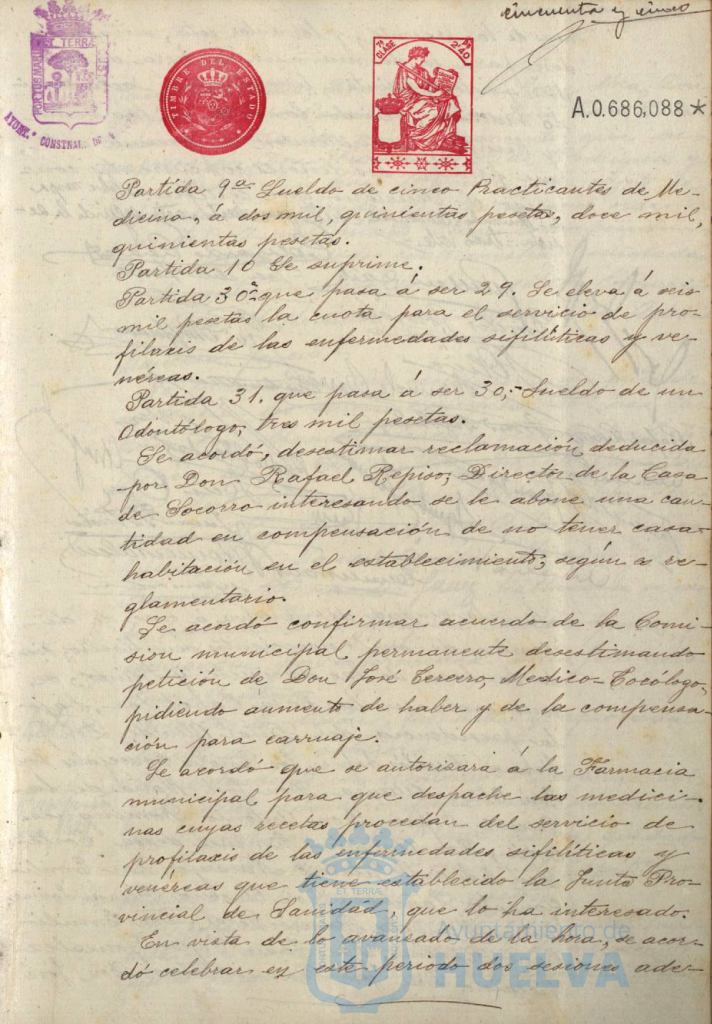 cincuenta y cinco
PORTUS MARIS ET TERRÆ CUSTODIA
AYUNT.º CONSTNAL. DE
TIMBRE DEL ESTADO
7ª CLASE
2'40 Pts
A.0.686,088 *
Partida 9ª Sueldo de cinco Practicantes de Me-
dicina, á dos mil, quinientas pesetas, doce mil,
quinientas pesetas.
Partida 10 Se suprime.
Partida 30ª que pasa á ser 29. Se eleva á seis
mil pesetas la cuota para el servicio de pro-
filaxis de las enfermedades sifilíticas y ve-
néreas.
Partida 31. que pasa á ser 30,- Sueldo de un
Odontólogo, tres mil pesetas.
Se acordó, desestimar reclamación deducida
por Don Rafael Repiso, Director de la Casa
de Socorro interesando se le abone una can-
tidad en compensación de no tener casa-
habitación en el establecimiento, según es re-
glamentario.
Se acordó confirmar acuerdo de la Comi-
sion municipal permanente desestimando
petición de Don José Tercero, Medico-Tocólogo,
pidiendo aumento de haber y de la compensa-
ción para carruaje.
Se acordó que se autorizará á la Farmacia
municipal para que despache las medici-
nas cuyas recetas procedan del servicio de
profilaxis de las enfermedades sifilíticas y
venéreas que tiene establecido la Junta Pro-
vincial de Sanidad, que lo ha interesado.
En vista de lo avanzado de la hora, se acor-
dó celebrar en este periodo dos sesiones ade-
ET TERRÆ
Ayuntamiento de
HUELVA